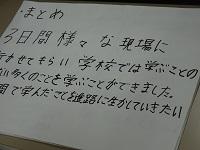 まとめ
3日間様々な現場に
行かせてもらい学校では学ぶことの
ない多くのことを学ぶことができました。
間で学んだことを進路に生かしていきたい